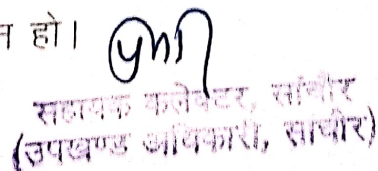 न हो।
सहायक कलेक्टर, सांचौर
(उपखण्ड अधिकारी, सांचौर)